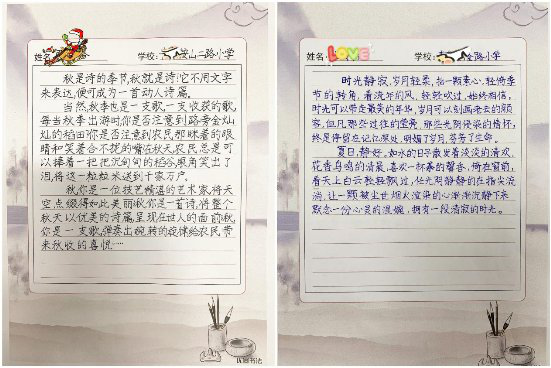 姓名
学校:
山二路小学
秋是诗的季节,秋就是诗!它不用文字
来表达,便可成为一首动人诗篇。
当然,秋季也是一支歌,一支收获的歌,
每当秋季出游时,你是否注意到路旁金灿
灿的稻田?你是否注意到农民那眯着的眼
睛和笑着合不拢的嘴?在秋天,农民总是可
以捧着一把把沉甸甸的稻谷,眼角笑出了
泪,将这一粒粒米送到千家万户。
秋,你是一位技艺精湛的艺术家,将天
空点缀得如此美丽;秋,你是一首诗,将整个
秋天以优美的诗篇呈现在世人的面前;秋,
你是一支歌,弹奏出婉转的旋律,给农民带
来秋收的喜悦……
姓名
LOVE
学校:
路小学
时光静寂,岁月轻柔,拈一颗素心,轻倚季
节的转角,看流年的风,轻轻吹过,始终相信,
时光可以带走最美的年华,岁月可以刻画老去的颜
容,但凡那些过往的
,那些光阴浸染的情怀,
终是停留在记忆深处,明媚了岁月,芬芳了生命。
夏日,静好。如水的日子散发着淡淡的清欢,
花香鸟鸣的清晨,喜欢一杯茶的馨香,倚在窗前,
看天上白云轻轻飘过,任光阴静静的在指尖流
淌,让一颗被尘世烟火渲染的心渐渐沉静下来,
默念一份心灵的温婉,拥有一段清寂的时光。